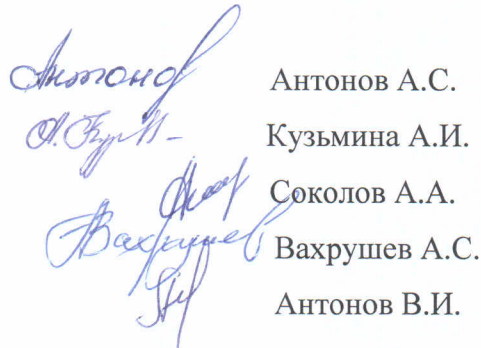 Антонов Антонов А.С.
Кузьмина А.И.
Соколов А.А.
Вахрушев Вахрушев А.С.
Антонов В.И.